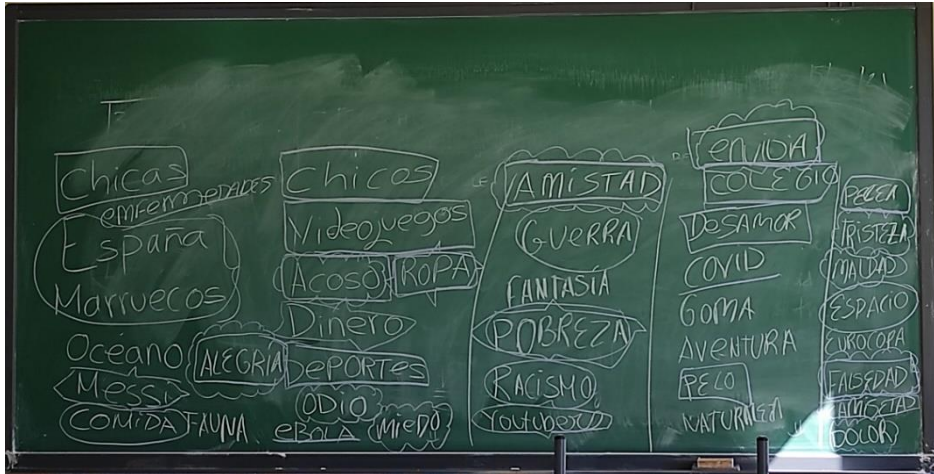 Chicas
enfermedades
España
Marruecos
Océano
ALEGRÍA
Messi
COMIDA FAUNA
Chicos
Videojuegos
Acoso ROPA
Dinero
DEPORTES
ODIO
eBOLA MIEDO
AMISTAD
GUERRA
FANTASÍA
POBREZA
RACISMO
Youtubers
ENVIDIA
COLEGIO
DESAMOR
COVID
GOMA
AVENTURA
PELO
PELEA
TRISTEZA
MALDAD
ESPACIO
EUROCOPA
FALSEDAD
DOLOR